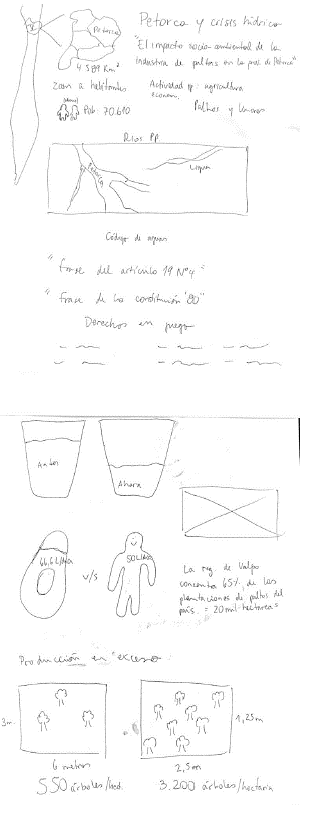 Petorca y crisis hídrica
Petorca
4.589 Km²
"El impacto socio-ambiental de la
industria de paltas en la prov. de Petorca"
Zoom a habitantes
Pob: 70.610
Actividad pp: agricultura
econom.
Paltas y
Ríos PP.
Petorca
Ligua
Código de aguas
"frase del artículo 19 Nº4"
"frase de la constitución '80"
Derechos en juego
Antes
Ahora
v/s
50L/
La reg. de Valpo
concentra 65% de las
plantaciones de paltos del
país. = 20 mil hectáreas
Producción en "exceso"
3m.
6 metros
550 árboles/hect.
1,25m
2,5m
3.200 árboles/hectaria